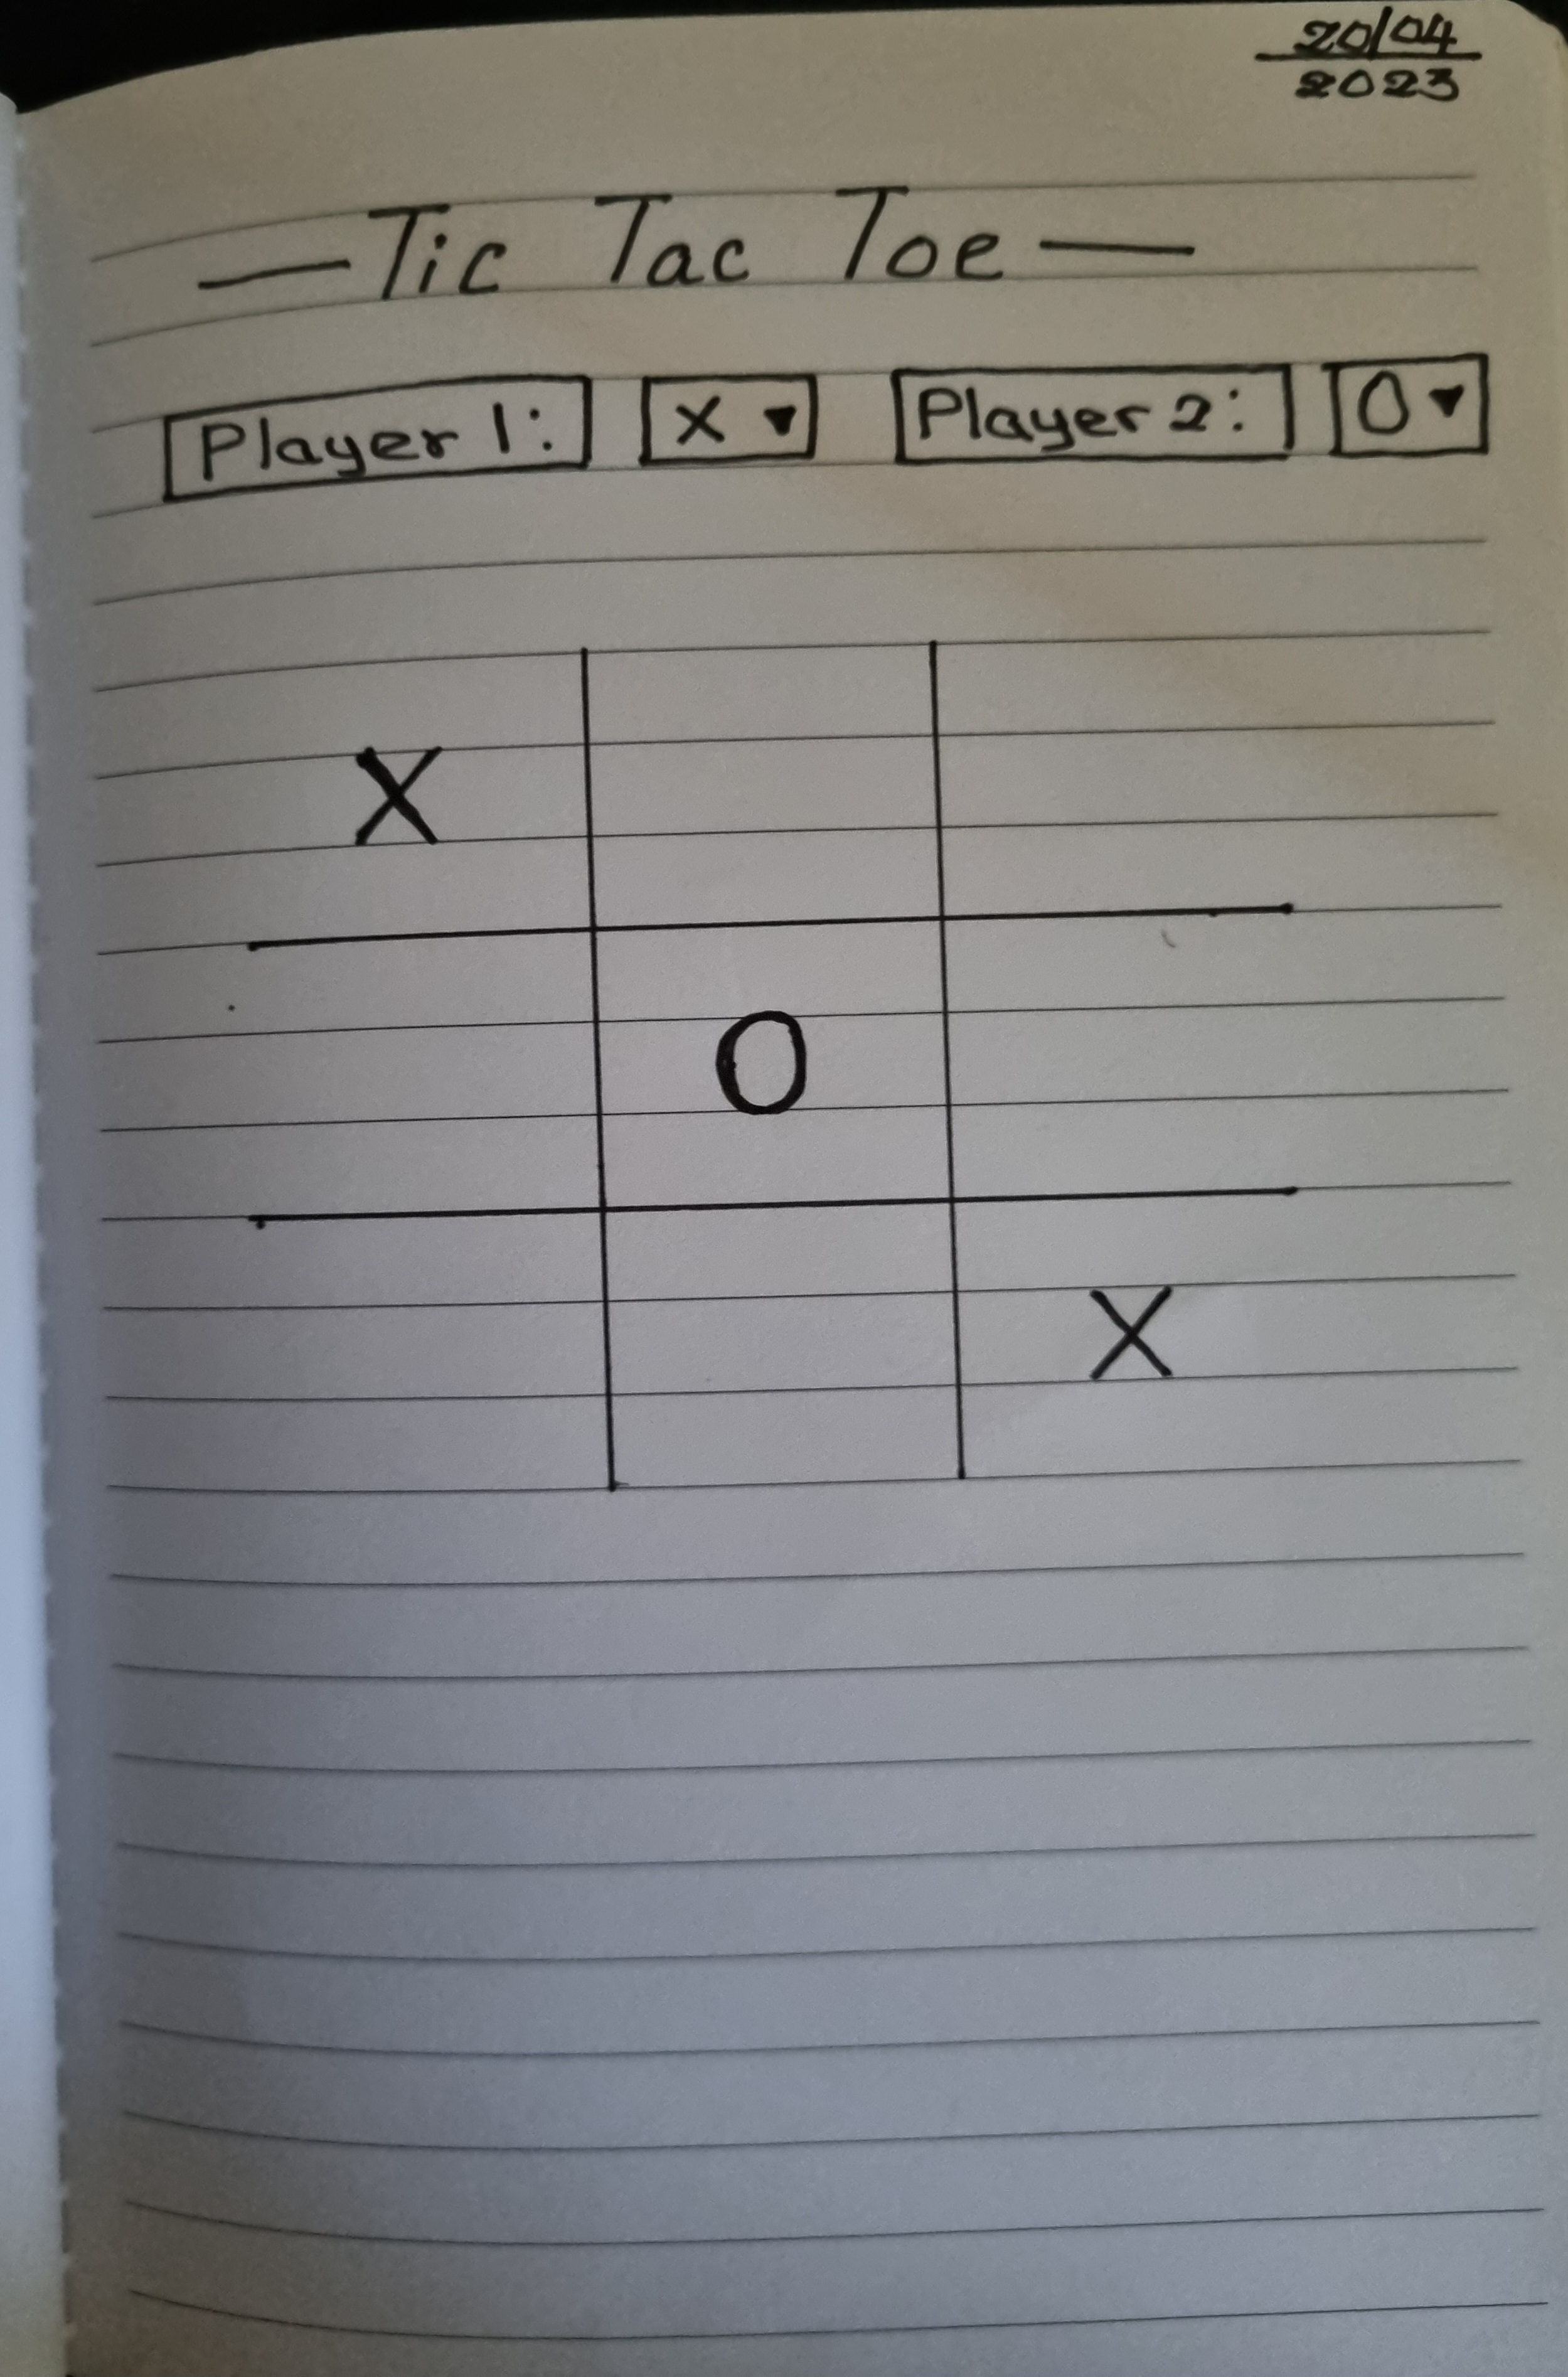 20/04
2023
— Tic Tac Toe —
Player 1: X ▾ Player 2: O ▾
X
O
X